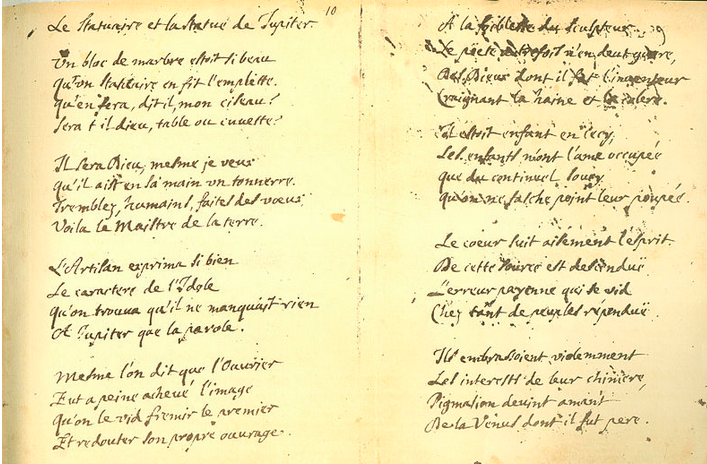 10
Le Statuaire et la statue de Jupiter
Un bloc de marbre estoit si beau
Qu'un Statuaire en fit l'emplette.
qu'en fera, dit il, mon ciseau?
sera t il dieu, table ou cuvette?
Il sera Dieu, mesme je veus
qu'il ait en sa main un tonnerre.
Tremblez, humains, faites des vœus
Voila le Maistre de la terre.
L'Artisan exprima si bien
Le caractere de l'Idole
Qu'on trouva qu'il ne manquait rien
A Jupiter que la parole.
Mesme l'on dit que l'Ouvrier
Eut a peine achevé l'image
Qu'on le vid fremir le premier
Et redouter son propre ouvrage.
A la foiblesse du sculpteur
Le poete autrefois n'en deut guere,
Des Dieux dont il fut l'inventeur
Craignant la haine et la colere.
Il estoit enfant en cecy,
Les enfants n'ont l'ame occupée
que du continuel soucy
qu'on ne fasche point leur poupée.
Le coeur suit aisement l'esprit.
De cette source est descenduë
L'erreur payenne qui se vid
Chez tant de peuples répenduë
Ils embrassoient violemment
Les interests de leur chimere,
Pigmalion devint amant
De la Venus dont il fut pere.